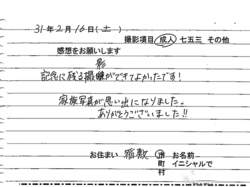 31年2月16日(土)
撮影項目 成人 七五三 その他
感想をお願いします
影
記念に残る撮影ができてよかったです!
家族写真が思い出になりました。
ありがとうございました!!
お住まい 稲敷 市 お名前
町 イニシャルで
村